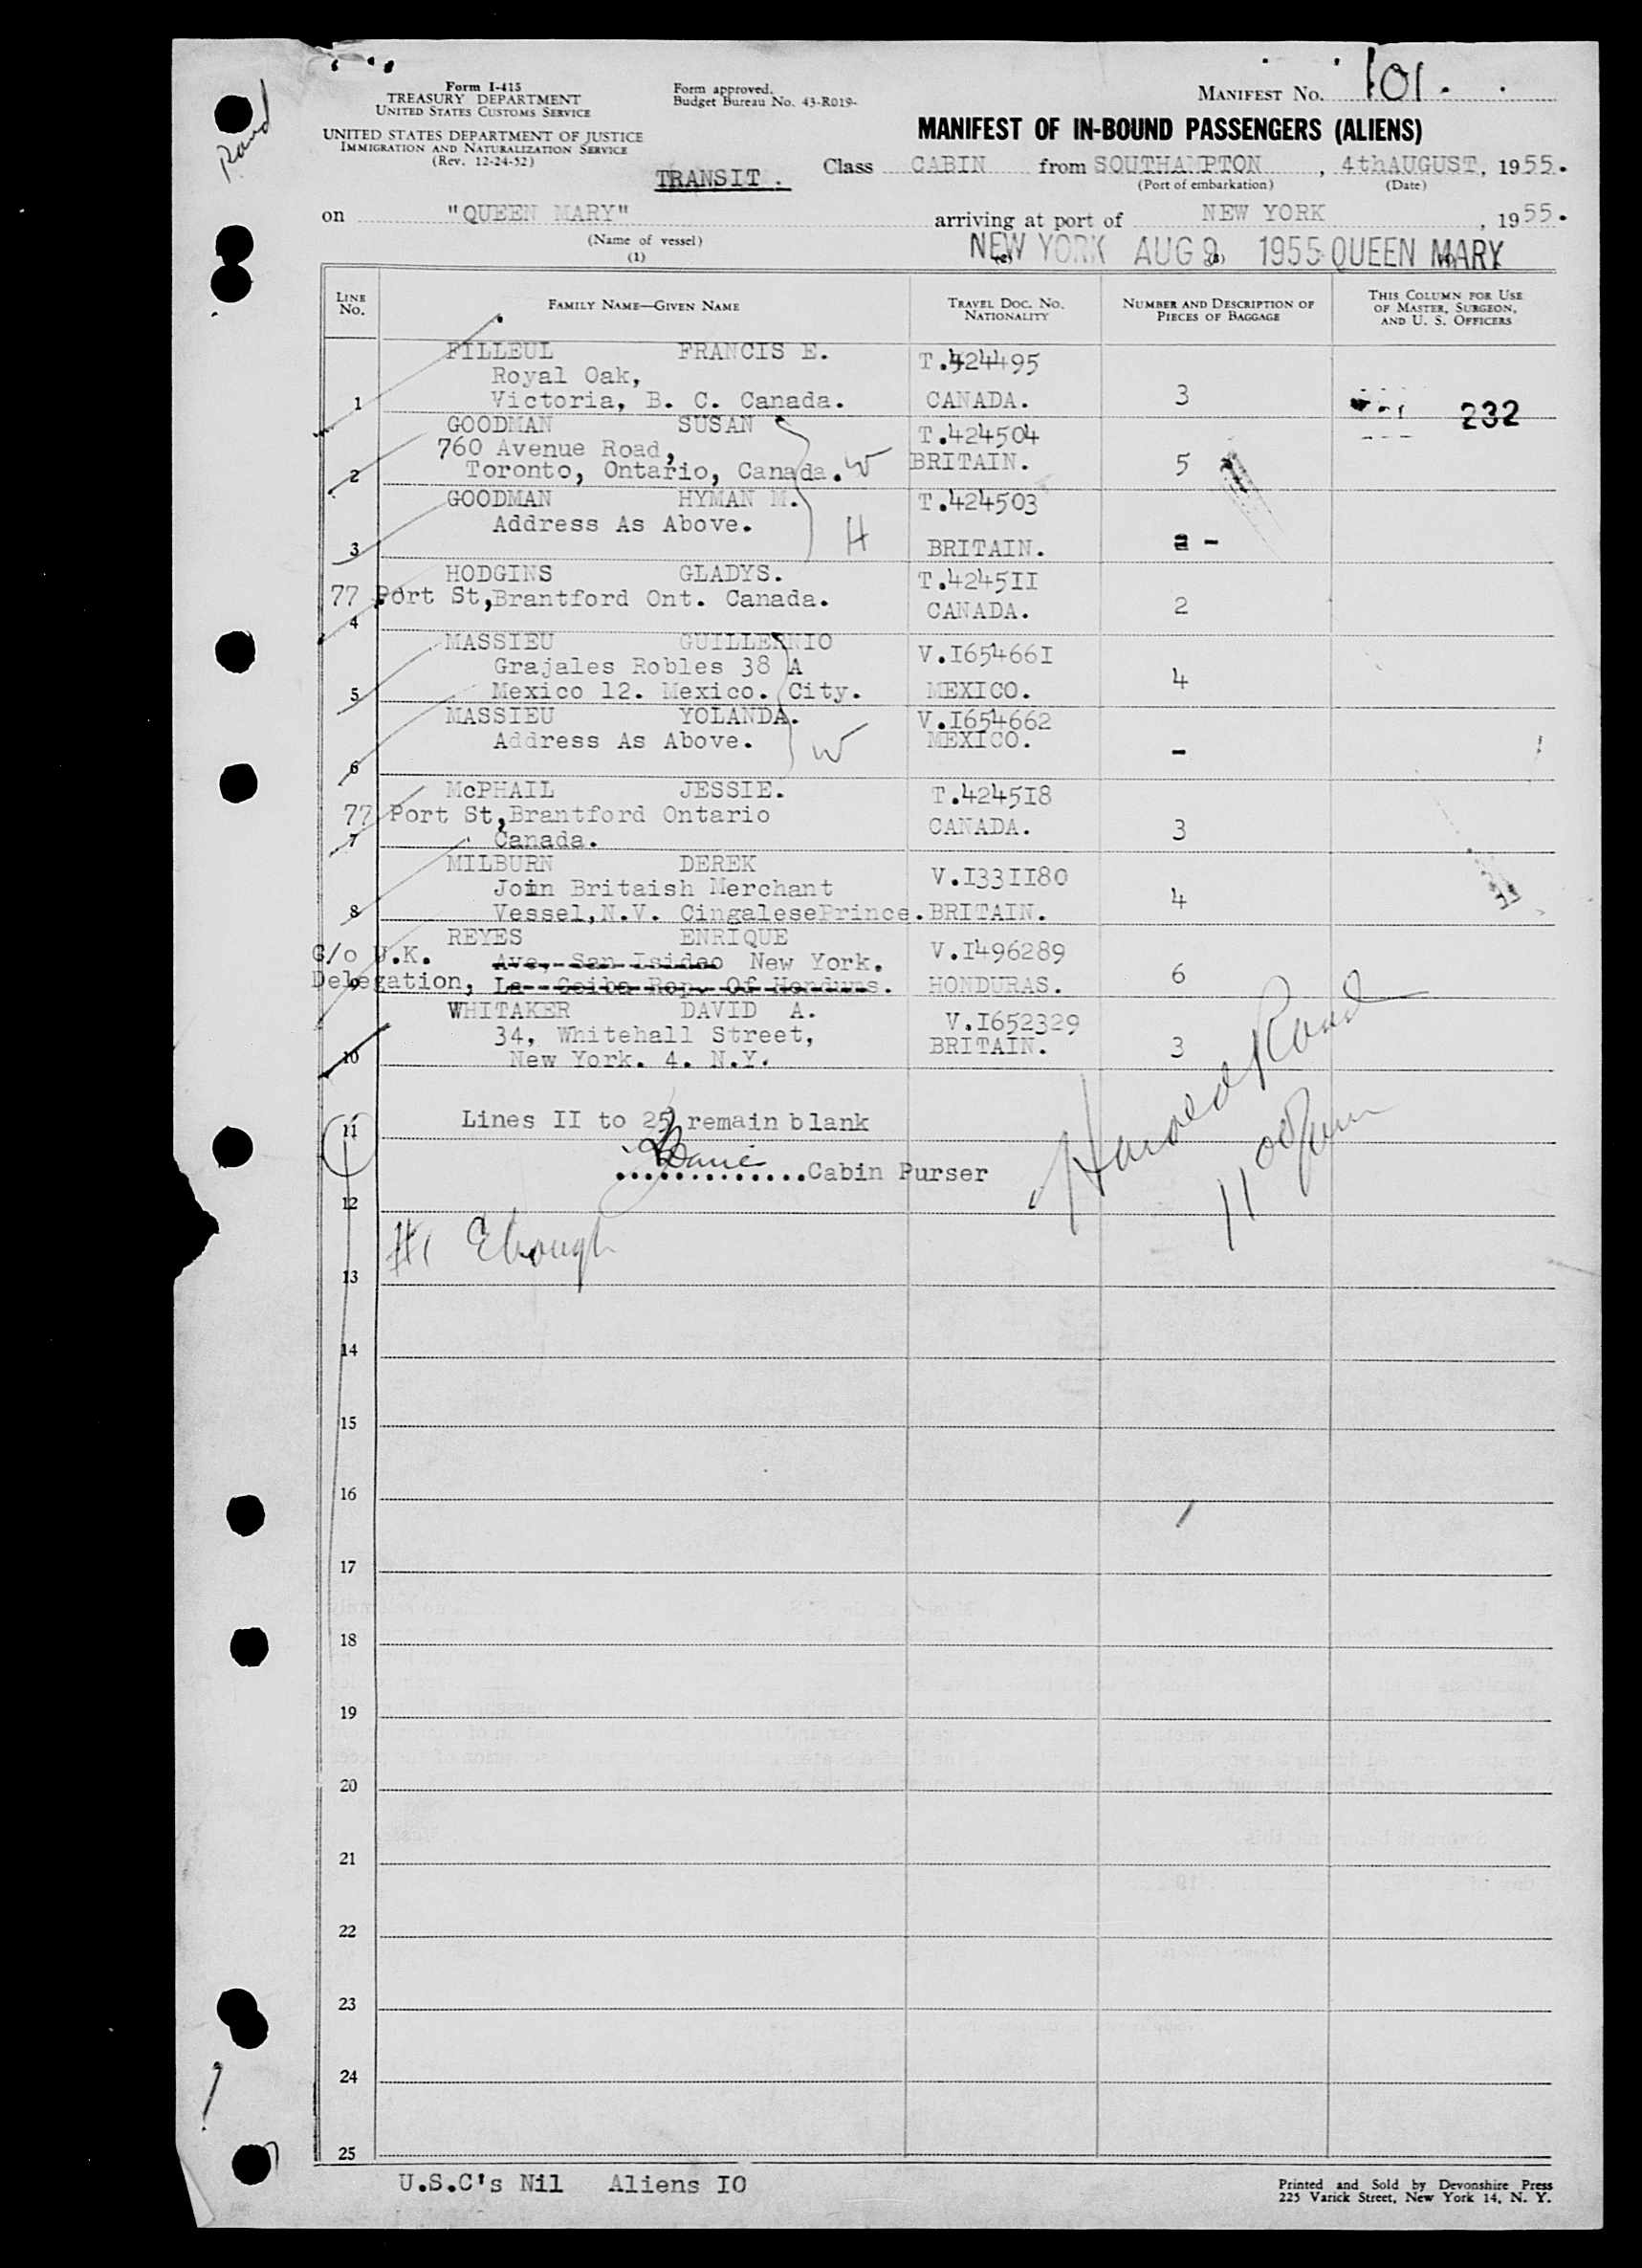 Rand
Form I-415
TREASURY DEPARTMENT
UNITED STATES CUSTOMS SERVICE
UNITED STATES DEPARTMENT OF JUSTICE
IMMIGRATION AND NATURALIZATION SERVICE
(Rev. 12-24-52)
Form approved.
Budget Bureau No. 43-R019-
MANIFEST No. 101.
MANIFEST OF IN-BOUND PASSENGERS (ALIENS)
TRANSIT. Class CABIN from SOUTHAMPTON, 4thAUGUST, 1955.
(Port of embarkation) (Date)
on "QUEEN MARY" arriving at port of NEW YORK, 1955.
(Name of vessel)
NEW YORK AUG 9 1955 QUEEN MARY
(1) (2) (3)
LINE No. FAMILY NAME—GIVEN NAME TRAVEL DOC. No. NATIONALITY NUMBER AND DESCRIPTION OF PIECES OF BAGGAGE THIS COLUMN FOR USE OF MASTER, SURGEON, AND U. S. OFFICERS
FILLEUL FRANCIS E. T.424495
Royal Oak,
1 Victoria, B. C. Canada. CANADA. 3 232
GOODMAN SUSAN T.424504
760 Avenue Road,
2 Toronto, Ontario, Canada. W BRITAIN. 5
GOODMAN HYMAN M. T.424503
Address As Above. H
3 BRITAIN. -
HODGINS GLADYS. T.4245II
77 Port St,Brantford Ont. Canada. CANADA. 2
4
MASSIEU GUILLERNIO V.I65466I
Grajales Robles 38 A
5 Mexico 12. Mexico. City. MEXICO. 4
MASSIEU YOLANDA. V.I654662
Address As Above. W MEXICO. -
6
McPHAIL JESSIE. T.4245I8
77 Port St,Brantford Ontario
7 Canada. CANADA. 3
MILBURN DEREK V.I33II80
Join Britaish Merchant
8 Vessel,N.V. CingalesePrince. BRITAIN. 4
REYES ENRIQUE V.I496289
C/o U.K. Ave, San Isideo New York.
9 Delegation, La Ceiba Rep. Of Honduras. HONDURAS. 6
WHITAKER DAVID A. V.I652329
34, Whitehall Street,
10 New York. 4. N.Y. BRITAIN. 3
Harold Rand
11 00 pm
Lines II to 25 remain blank
11
..............Cabin Purser
12
#1
13
14
15
16
17
18
19
20
21
22
23
24
25
U.S.C's Nil Aliens IO
Printed and Sold by Devonshire Press
225 Varick Street, New York 14, N. Y.